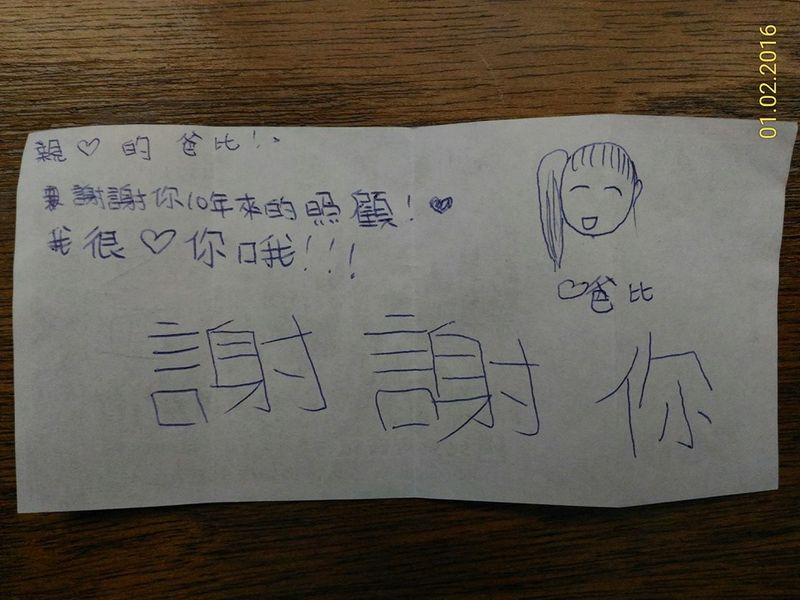 01.02.2016
親♡的 爸比!、
要謝謝你10年來的照顧!♥
我很♡你哦!!!
♡爸比
謝謝你